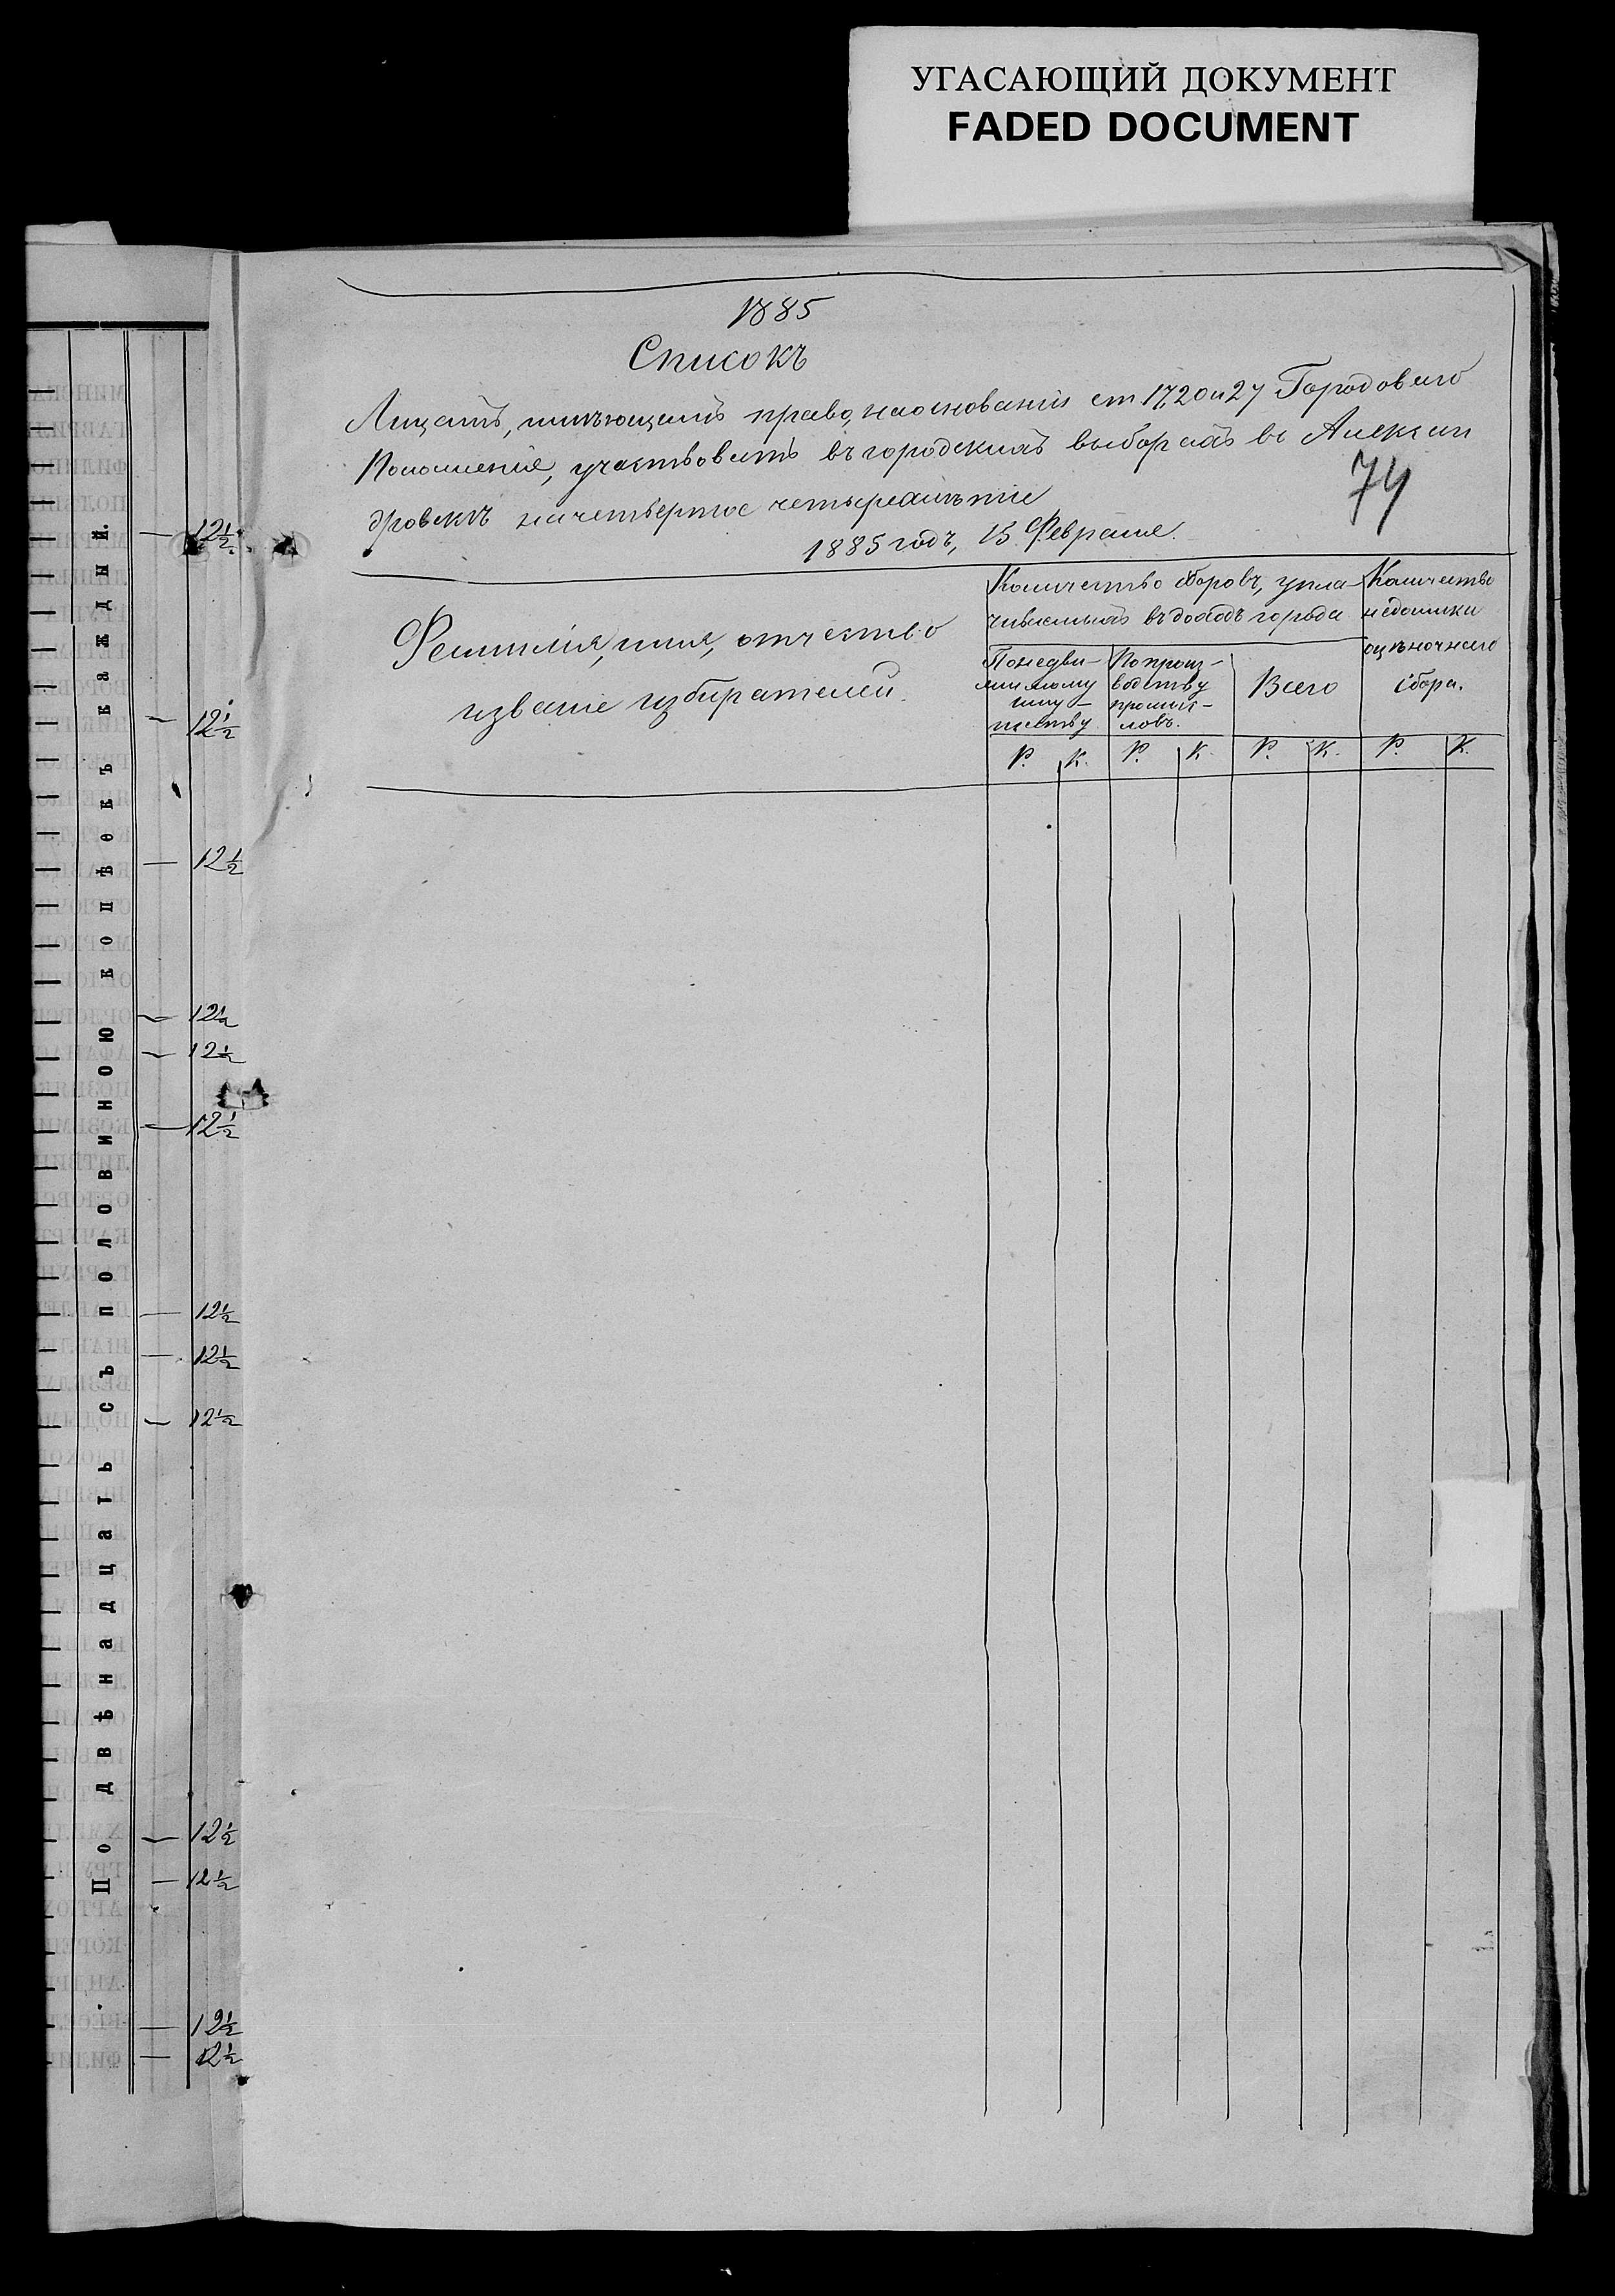 УГАСАЮЩИЙ ДОКУМЕНТ
FADED DOCUMENT
1885
Списокъ
Лицамъ, имѣющимъ право, на основаніи ст 17, 20 и 24 Городоваго
Положенія, участвовать въ городскихъ выборахъ въ Алексан
дровскѣ на четвертое четырехлѣтіе
74
1885 годъ, 15 Февраля.
Фамилія, имя, отчество
и званіе избирателей.
Количество сборовъ, упла-
чиваемыхъ въ доходъ города
По недви-
жимому
иму-
ществу
По произ-
водству
промыс-
ловъ.
Всего
Количество
недоимки
оцѣночнаго
сбора.
Р. К. Р. К. Р. К. Р. К.
По двѣнадцать съ половиною копѣекъ каждый.
— 12½
— 12½
— 12½
— 12½
— 12½
— 12½
— 12½
— 12½
— 12½
— 12½
— 12½
— 12½
— 12½